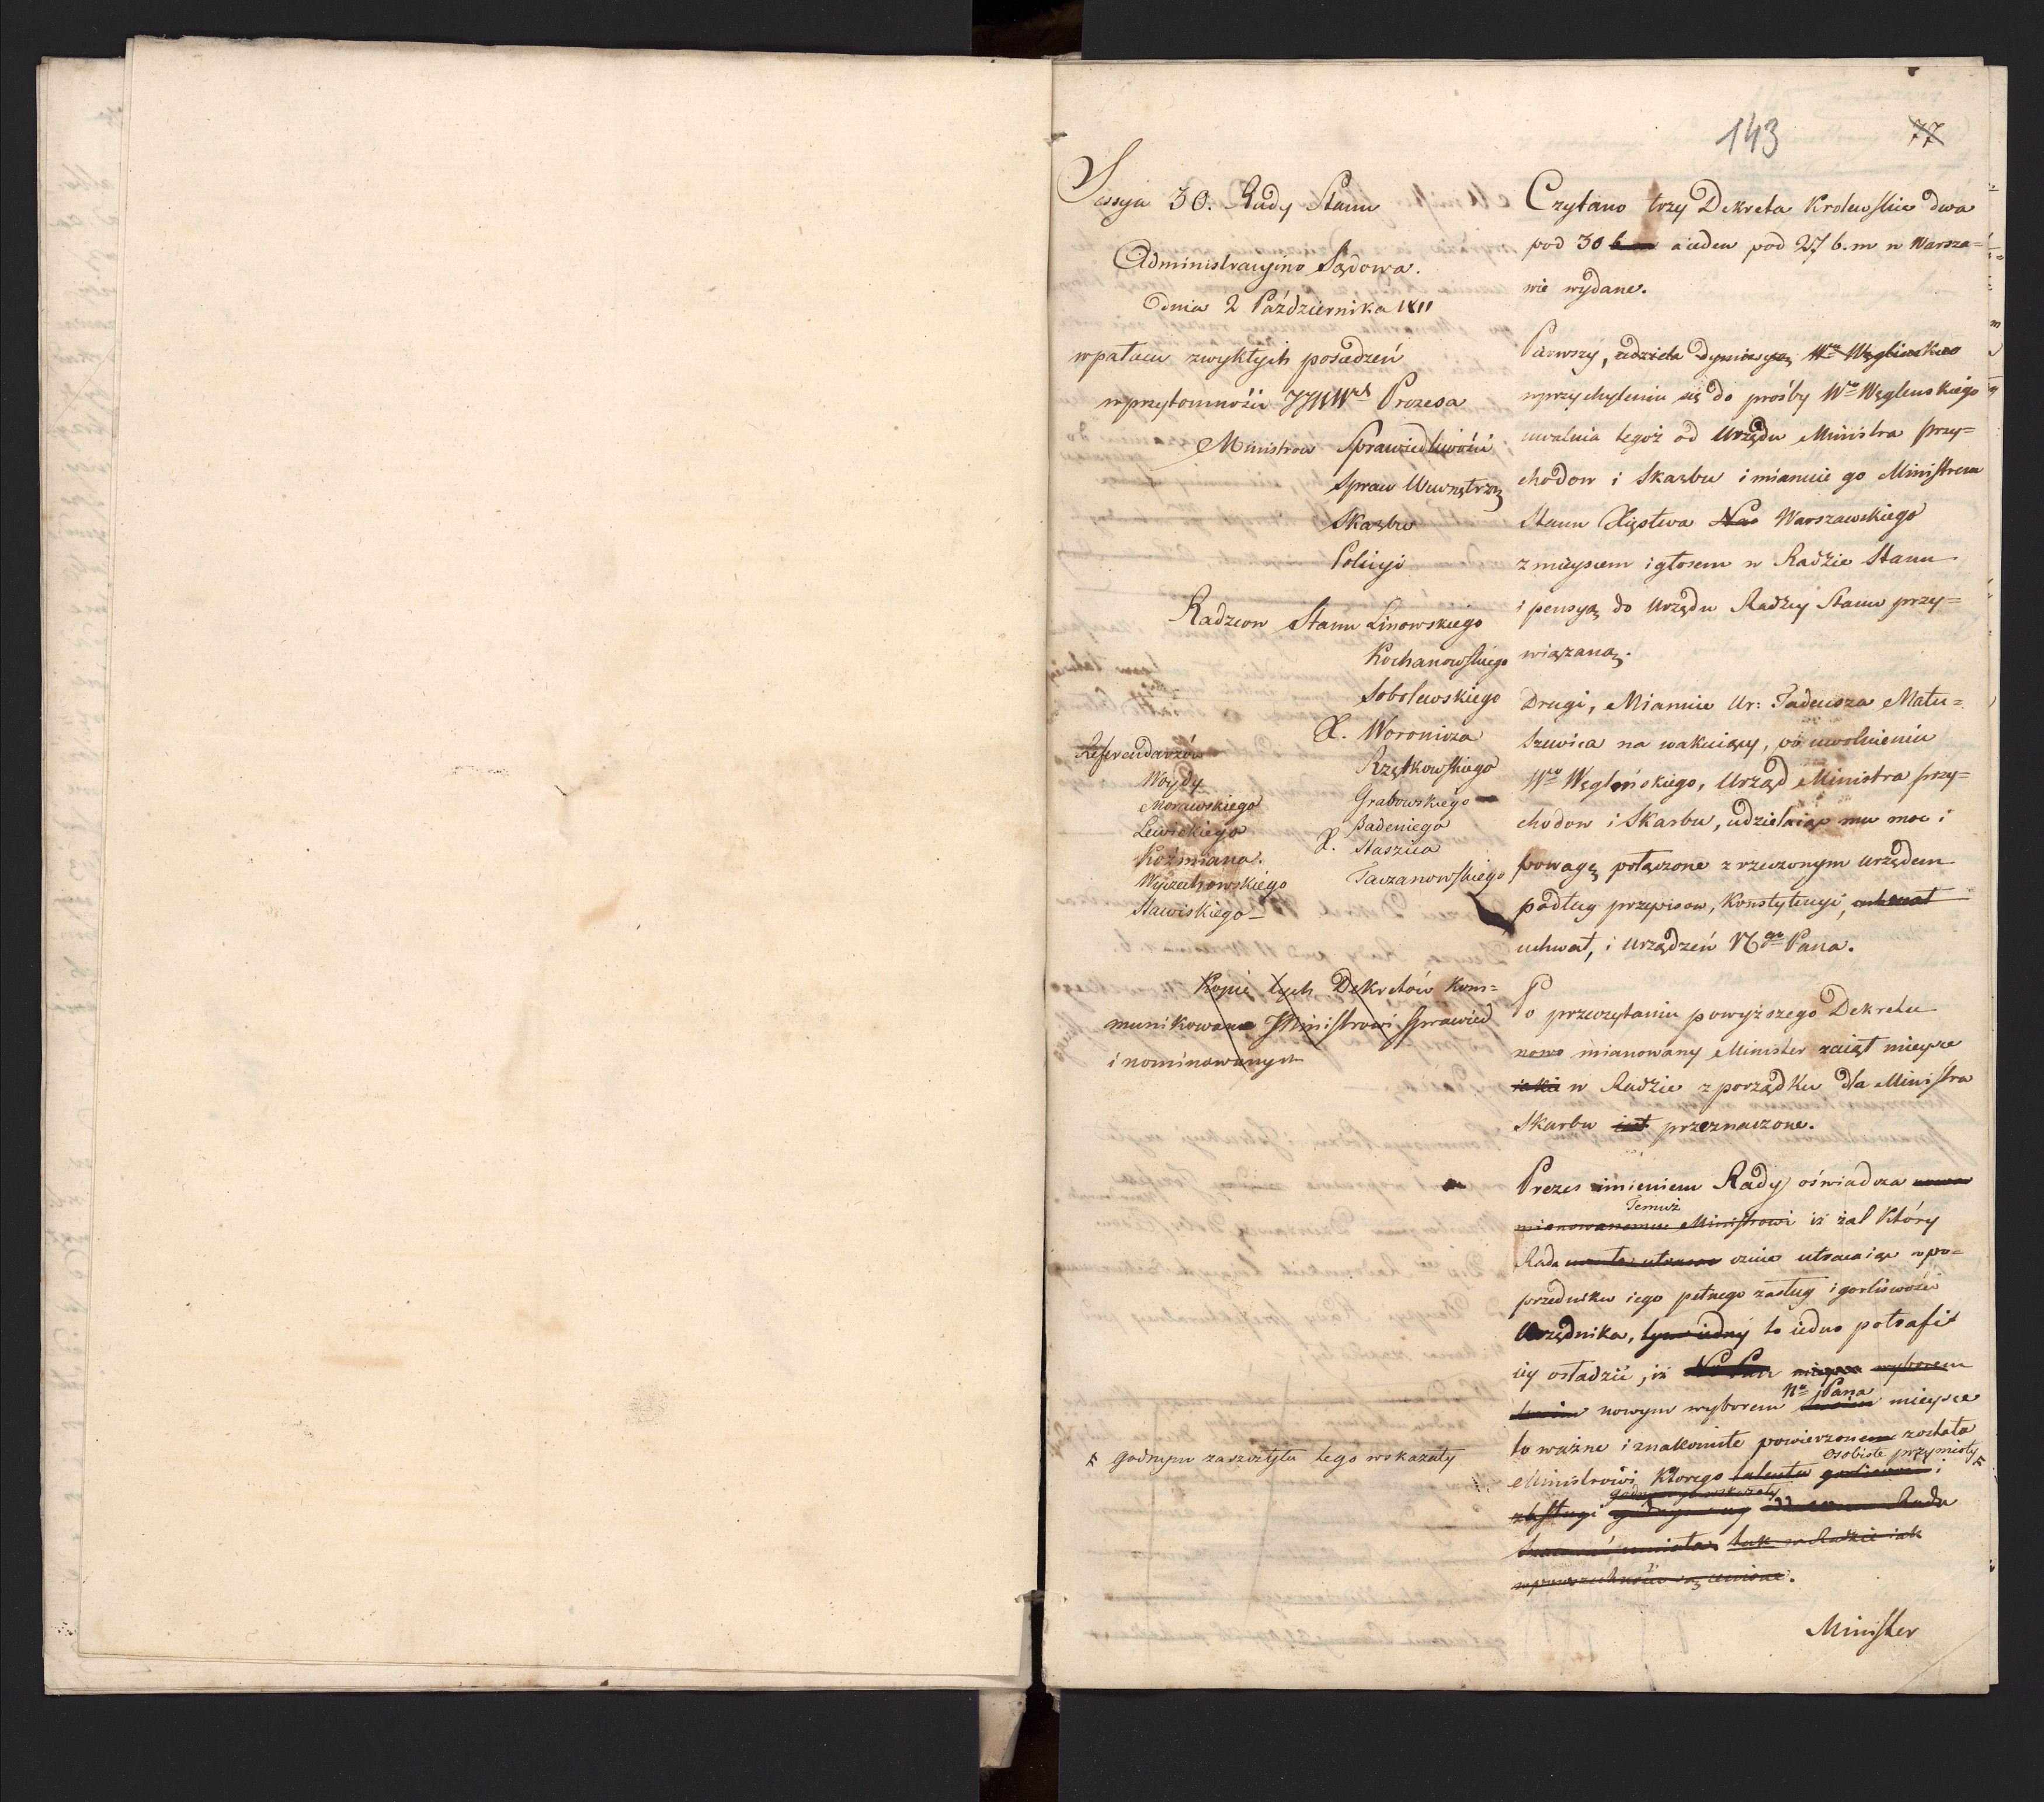 143
77
Sessya 30. Rady Stanu
Administracyino Sądowa.
Dnia 2 Października 1811
w pałacu zwykłych posiedzeń
w przytomności JJWWch Prezesa
Ministrow Sprawiedliwości
Spraw Wewnętrz
Skarbu
Policyi
Radzcow Stanu Linowskiego
Kochanowskiego
Sobolewskiego
X. Woronicza
Rzętkowskiego
Grabowskiego
Badeniego
X. Staszica
Taczanowskiego
Referendarzów
Woydy
Morawskiego
Lewickiego
Koźmiana.
Wyczechowskiego
Stawiskiego
Kopie tych Dekretów kom=
munikowane Ministrowi Sprawied
i nominowanym
# godnym zaszczytu tego wskazały
Czytano trzy Dekreta Krolewskie dwa
pod 30 b.m a ieden pod 27 b.m w Warsza=
wie wydane.
Pierwszy, udziela dymissyą Wu Węglenskiego
w przychyleniu się do prośby Wo Węglenskiego
uwalnia tegoż od Urzędu Ministra Przy=
chodow i Skarbu i mianuie go Ministrem
Stanu Xięstwa Warszawskiego
z mieyscem i głosem w Radzie Stanu
i pensyą do Urzędu Radzcy Stanu przy=
wiązaną.
Drugi, Mianuie Ur: Tadeusza Matu=
szewica na wakuiący, po uwolnieniu
Wgo Węgleńskiego, Urząd Ministra Przy=
chodow i Skarbu, udzielaiąc mu moc i
powagę połączone z rzeczonym urzędem
podług przepisow, Konstytucyi,
uchwał, i Urządzeń Ngo Pana.
Po przeczytaniu powyższego Dekretu
nowo mianowany Minister zaiął mieysce
iakie w Radzie z porządku dla Ministra
Skarbu iest przeznaczone.
Prezes imieniem Rady oświadcza nowo
Temuż
mianowanemu Ministrowi iż żal który
Rada czuie utracaiąc w po=
przedniku iego pełnego zasług i gorliwości
Urzędnika, tym iedny to iedno potrafi
iey osładzić, iż wyborem
No Pana
nowym wyborem mieysce
to ważne i znakomite powierzonem zostało
osobiste przymioty #
Ministrowi ktorego talenta i
zasługi Rada
tak w Radzie iak
Minister